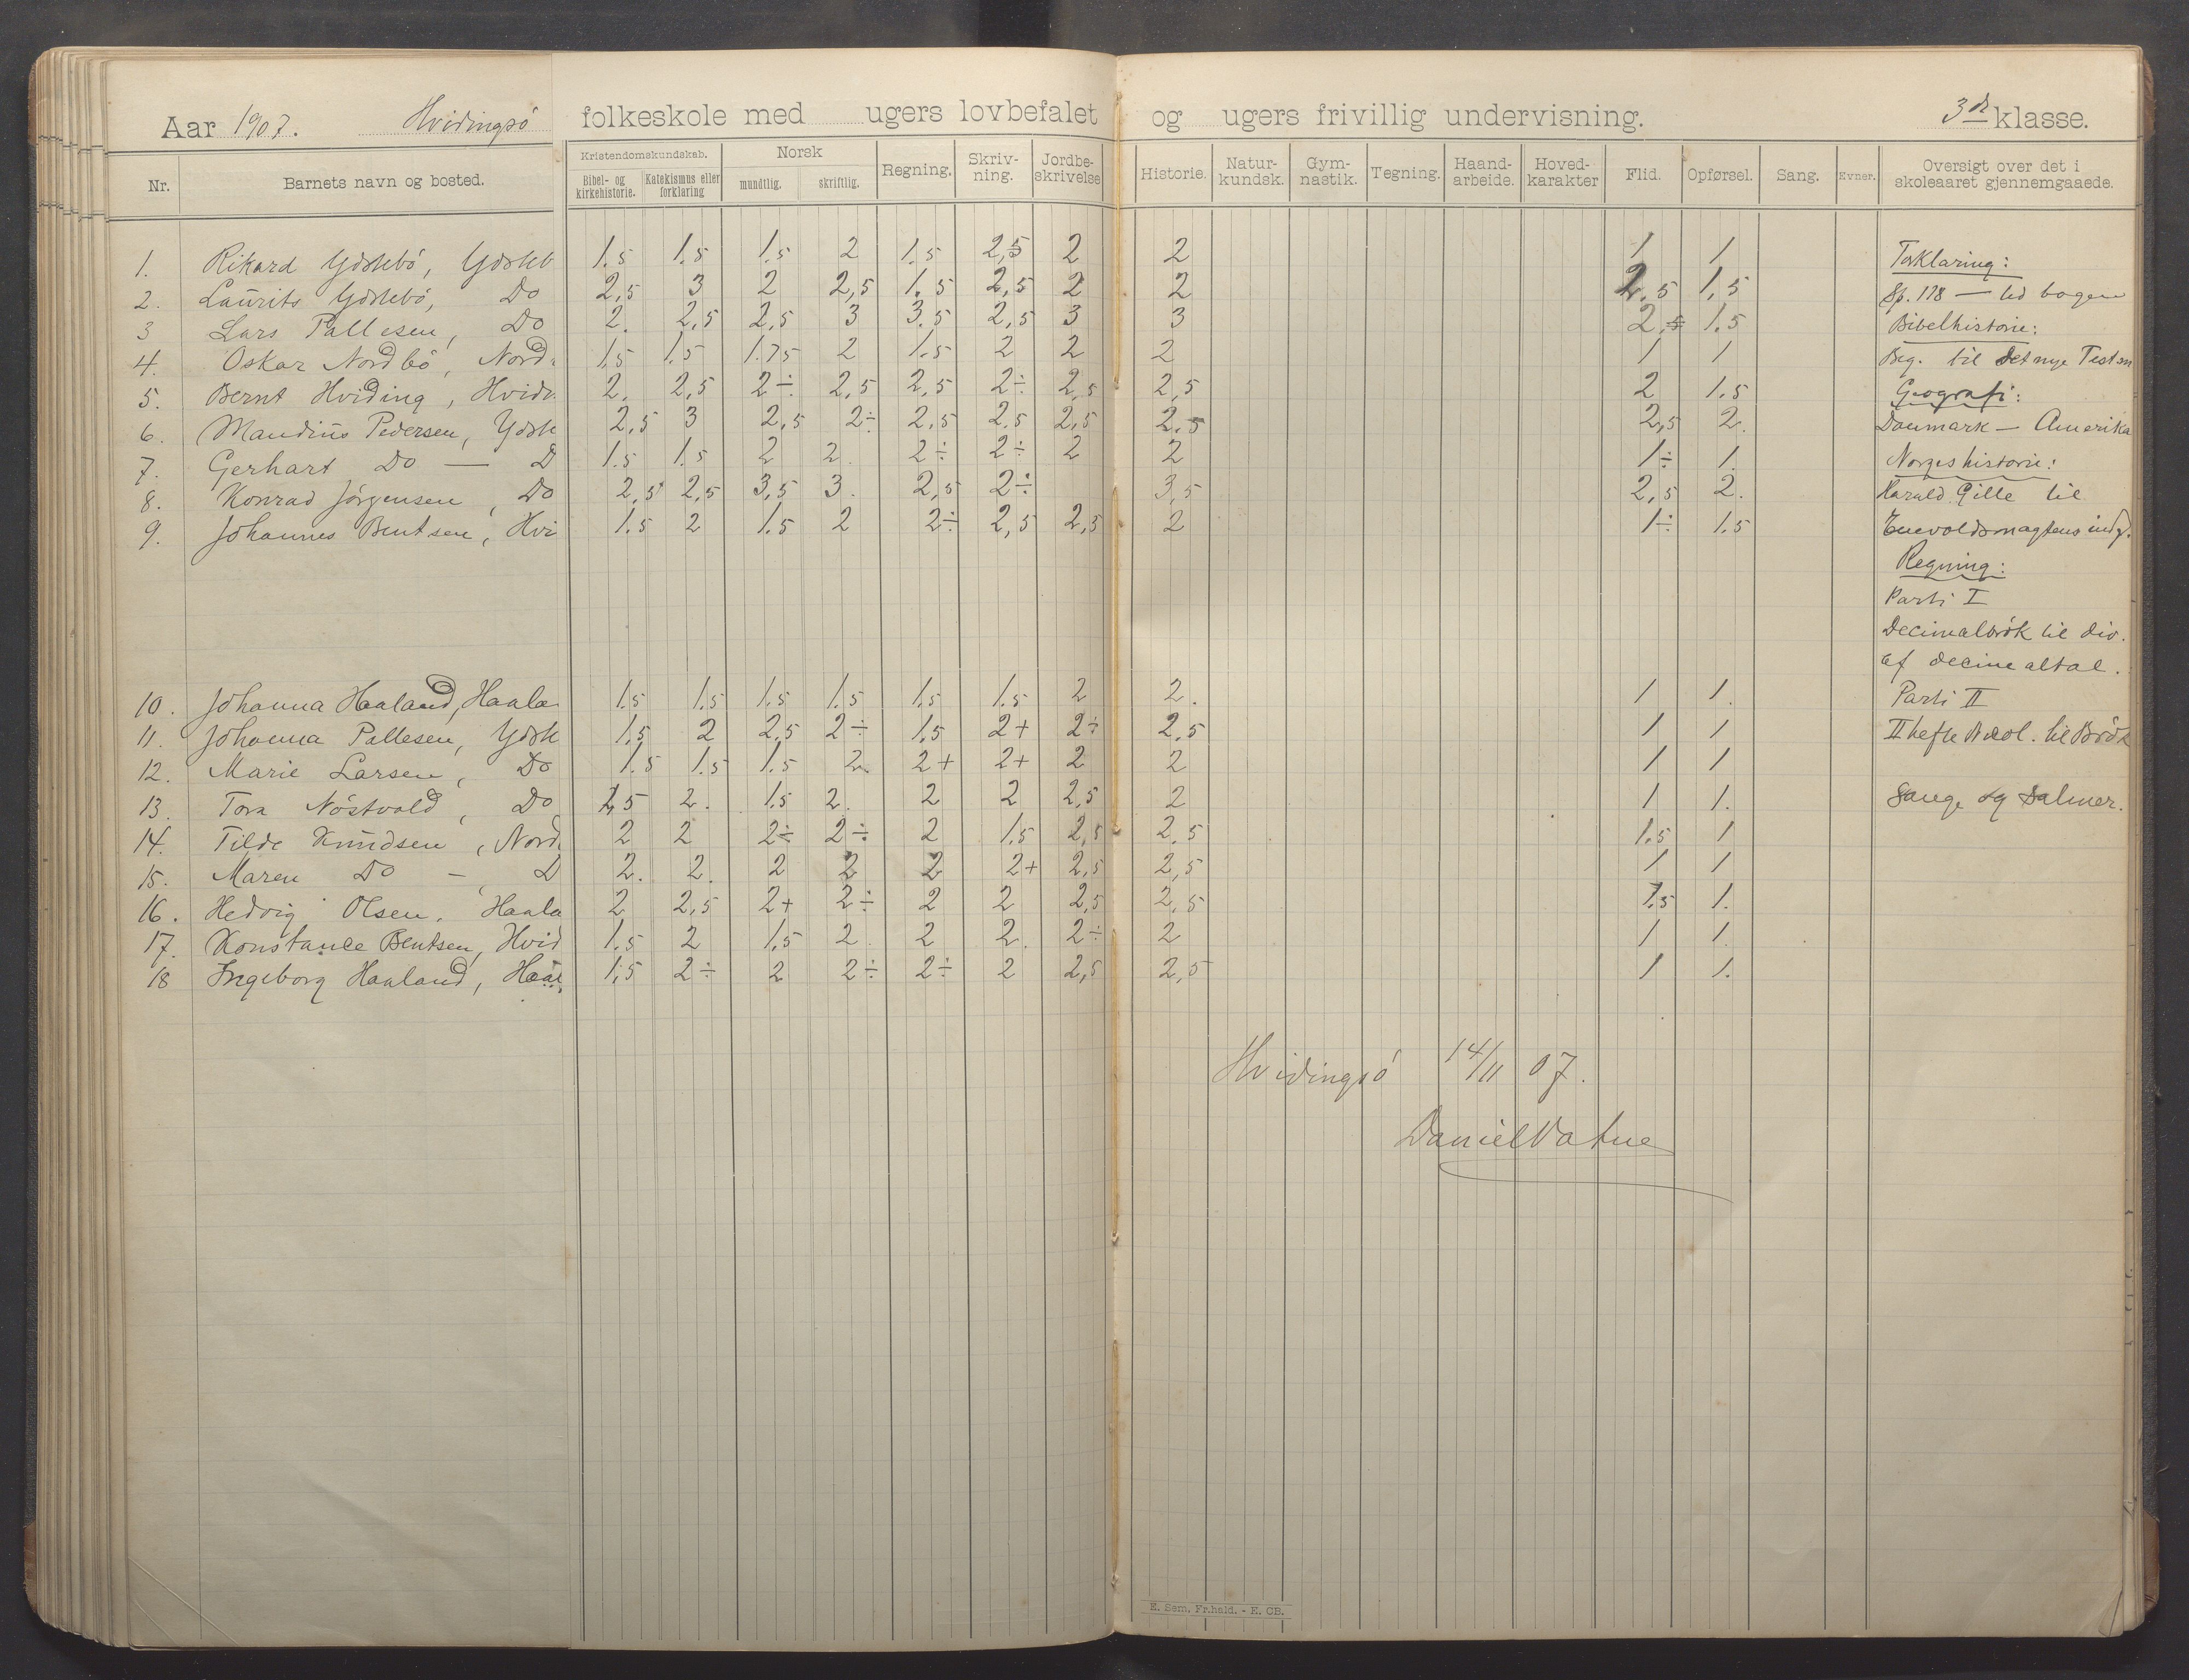 Aar 1907. Hvidingsö folkeskole med ugers lovbefalet og ugers frivillig undervisning. 3die klasse.
Nr. Barnets navn og bosted. Kristendomskundskab. Bibel- og kirkehistorie. Katekismus eller forklaring Norsk mundtlig. skriftlig. Regning. Skriv-ning. Jordbe-skrivelse Historie. Natur-kundsk. Gym-nastik. Tegning. Haand-arbeide. Hoved-karakter Flid. Opførsel. Sang. Evner. Oversigt over det i skoleaaret gjennemgaaede.
1. Rikard Ydstebö, Ydsteb 1.5 1.5 1.5 2 1.5 2,5 2 2 1 1 Forklaring:
2. Laurits Ydstebö, Do 2,5 3 2 2,5 1.5 2,5 2 2 2.5 1,5 Sp. 178 — ud bogen
3 Lars Pallesen, Do 2. 2,5 2,5 3 3.5 2,5 3 3 2,5 1.5 Bibelhistorie:
4. Oskar Nordbö, Nord 1,5 1.5 1.75 2 1.5 2 2 2 1 1 Beg. til det nye Testm
5. Bernt Hviding, Hvidi 2. 2,5 2÷ 2,5 2,5 2÷ 2,5 2,5 2 1.5 Geografi:
6. Mandius Pedersen, Ydste 2,5 3 2,5 2÷ 2,5 2.5 2,5 2.5 2,5 2. Danmark — Amerika
7. Gerhart Do — D 1.5 1.5 2 2. 2÷ 2÷ 2 2 1÷ 1. Norgeshistorie:
8. Konrad Jörgensen, Do 2,5 2,5 3,5 3. 2,5 2÷ 3,5 2,5 2. Harald Gille til
9. Johannes Bentsen, Hvi 1.5 2 1.5 2 2÷ 2,5 2,5 2 1÷ 1.5 Enevoldsmagtens indf.
Regning:
Parti I
Decimalbrök til div.
af decimaltal.
10. Johanna Haaland, Haala 1.5 1.5 1.5 1.5 1.5 1.5 2 2. 1 1. Parti II
11. Johanna Pallesen, Ydste 1.5 2 2,5 2÷ 1.5 2+ 2÷ 2,5 1 1 II hefte Nicol. til Brök
12. Marie Larsen, Do 1.5 1.5 1.5 2. 2+ 2+ 2 2 1 1
13. Tora Nöstvold, Do 1,5 2. 1.5 2. 2 2 2,5 2 1 1. Sange og Salmer.
14. Tilde Knudsen, Nord 2 2 2÷ 2÷ 2 1.5 2,5 2,5 1.5 1
15. Maren Do — D 2. 2. 2 2 2 2+ 2,5 2,5 1 1
16. Hedvig Olsen, Haala 2 2,5 2+ 2÷ 2 2 2,5 2,5 1.5 1.
17. Konstance Bentsen, Hvid 1.5 2 1,5 2. 2 2. 2÷ 2 1 1.
18 Ingeborg Haaland, Haal 1,5 2÷ 2 2÷ 2÷ 2 2,5 2,5 1 1.
Hvidingsö 14/11 07.
Daniel Vatne
E. Sem, Fr.hald. - E. CB.